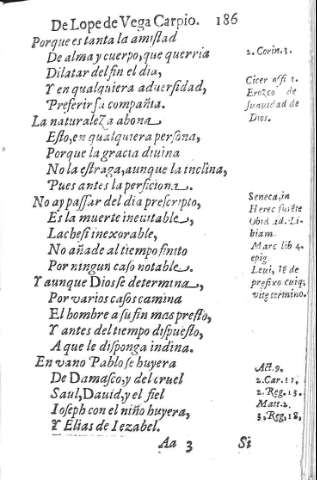 De Lope de Vega Carpio. 186
Porque es tanta la amistad
De alma y cuerpo, que querria
Dilatar del fin el dia,
Y en qualquiera aduersidad,
Preferir su compañia.
La naturaleza abona
Esto, en qualquiera persona,
Porque la gracia diuina
No la estraga, aunque la inclina,
Pues antes la perficiona.
No ay passar del dia prescripto,
Es la muerte ineuitable,
Lachesi inexorable,
No añade al tiempo finito
Por ningun caso notable.
Y aunque Dios se determina,
Por varios casos camina
El hombre a su fin mas presto,
Y antes del tiempo dispuesto,
A que le disponga indina.
En vano Pablo se huyera
De Damasco, y del cruel
Saul, Dauid, y el fiel
Ioseph con el niño huyera,
Y Elias de Iezabel.
Aa 3 Si
2. Corin. 1.
Cicer
de
suauidad de
Dios.
Seneca, in
Herc
biam.
Marc lib 4.
epig.
Leui, 18 de
prefixo cuiq,
vite termino.
Act. 9.
2. Cor. 11,
2. Reg. 13.
Matt. 2.
3. Reg. 18,